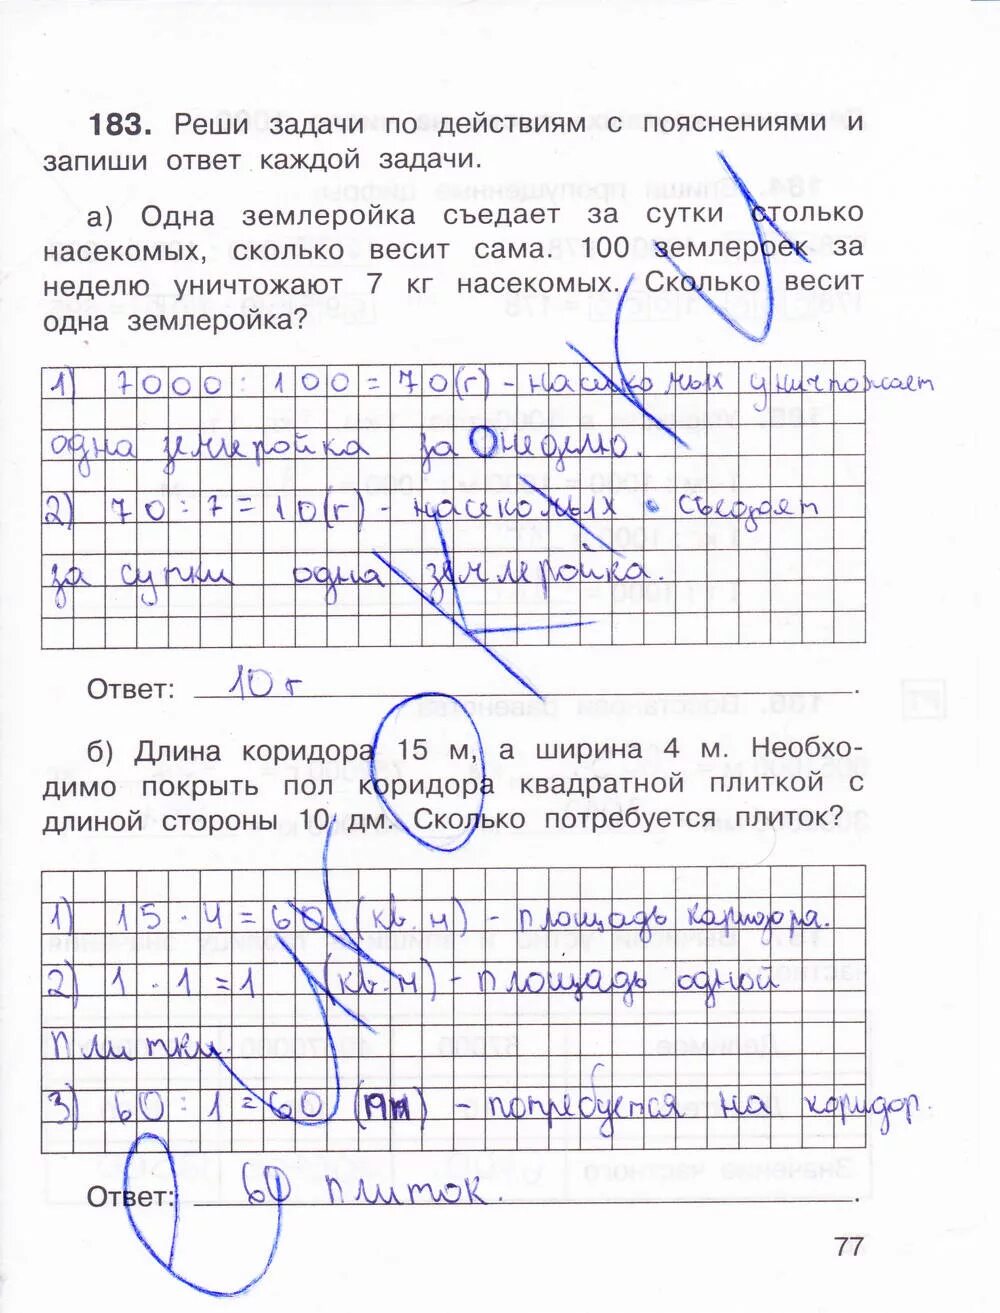 183. Реши задачи по действиям с пояснениями и
запиши ответ каждой задачи.
а) Одна землеройка съедает за сутки столько
насекомых, сколько весит сама. 100 землероек за
неделю уничтожают 7 кг насекомых. Сколько весит
одна землеройка?
1) 7000 : 100 = 70(г) - насикомых уничтожает
одна землеройка за неделю.
2) 70 : 7 = 10(г) - насекомых съедает
за сутки одна землеройка.
Ответ: 10 г.
б) Длина коридора 15 м, а ширина 4 м. Необхо-
димо покрыть пол коридора квадратной плиткой с
длиной стороны 10 дм. Сколько потребуется плиток?
1) 15 · 4 = 60 (кв.м) - площадь коридора.
2) 1 · 1 = 1 (кв.м) - площадь одной
плитки.
3) 60 : 1 = 60 (пл) - потребуется на коридор.
Ответ: 60 плиток.
77